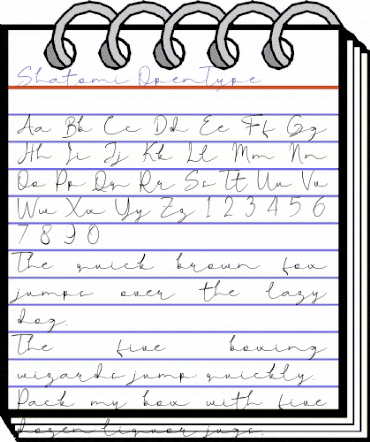 Shatomi OpenType
Aa Bb Cc Dd Ee Ff Gg
Hh Ii Jj Kk Ll Mm Nn
Oo Pp Qq Rr Ss Tt Uu Vv
Ww Xx Yy Zz 1 2 3 4 5 6
7 8 9 0
The quick brown fox
jumps over the lazy
dog.
The five boxing
wizards jump quickly.
Pack my box with five
dozen liquor jugs.